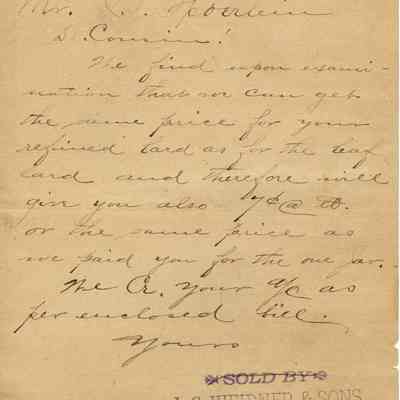 Mr.
D. Cousin!
We find upon exami-
nation that we can get
the same price for your
refined lard as for the leaf
lard and therefore will
give you also 7¢ @ lb.
or the same price as
we paid you for the one jar.
We Cr. your a/c as
per enclosed bill.
Yours
SOLD BY
WEIDNER & SONS